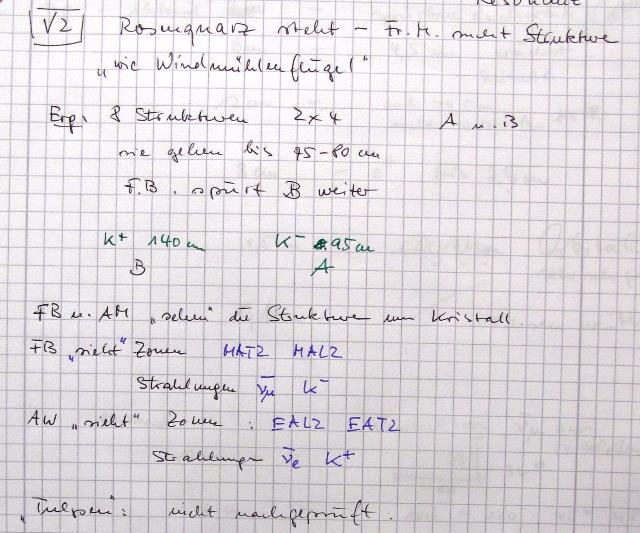 Resonanz
√2 Rosenquarz steht – Fr. H. sucht Struktur
„wie Windmühlenflügel"
Erg. 8 Strukturen 2x4 A u. B
sie gehen bis 75-80 cm
F.B. spürt B weiter
K+ 140 cm K- 95 cm
B A
FB u. AM „sehen" die Struktur um Kristall
FB „sieht" Zonen HAT2 HAL2
Strahlungen ν̅μ K-
AW „sieht" Zonen : EAL2 EAT2
Strahlungen ν̅e K+
nicht nachgeprüft.